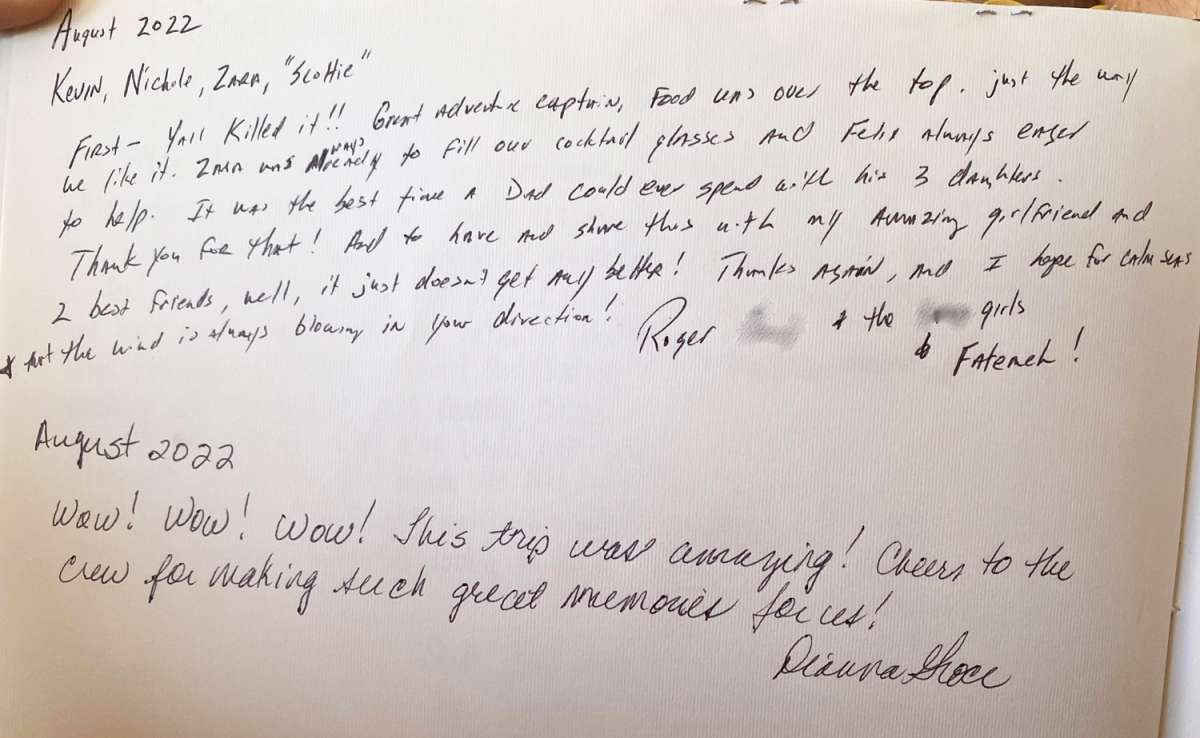 August 2022
Kevin, Nichole, Zara, "Scottie"
First - Yall Killed it!! Great Adventure Captain, Food was over the top. just the way
we like it. Zara was always ready to fill our cocktail glasses and Felix always eager
to help. It was the best time a Dad could ever spend with his 3 daughters.
Thank you for that! And to have and share this with my amazing girlfriend and
2 best friends, well, it just doesn't get any better! Thanks Again, and I hope for calm seas
& that the wind is always blowing in your direction! Roger & the girls
& Fatemeh!
August 2022
Wow! Wow! Wow! This trip was amazing! Cheers to the
crew for making such great memories for us!
Deanna